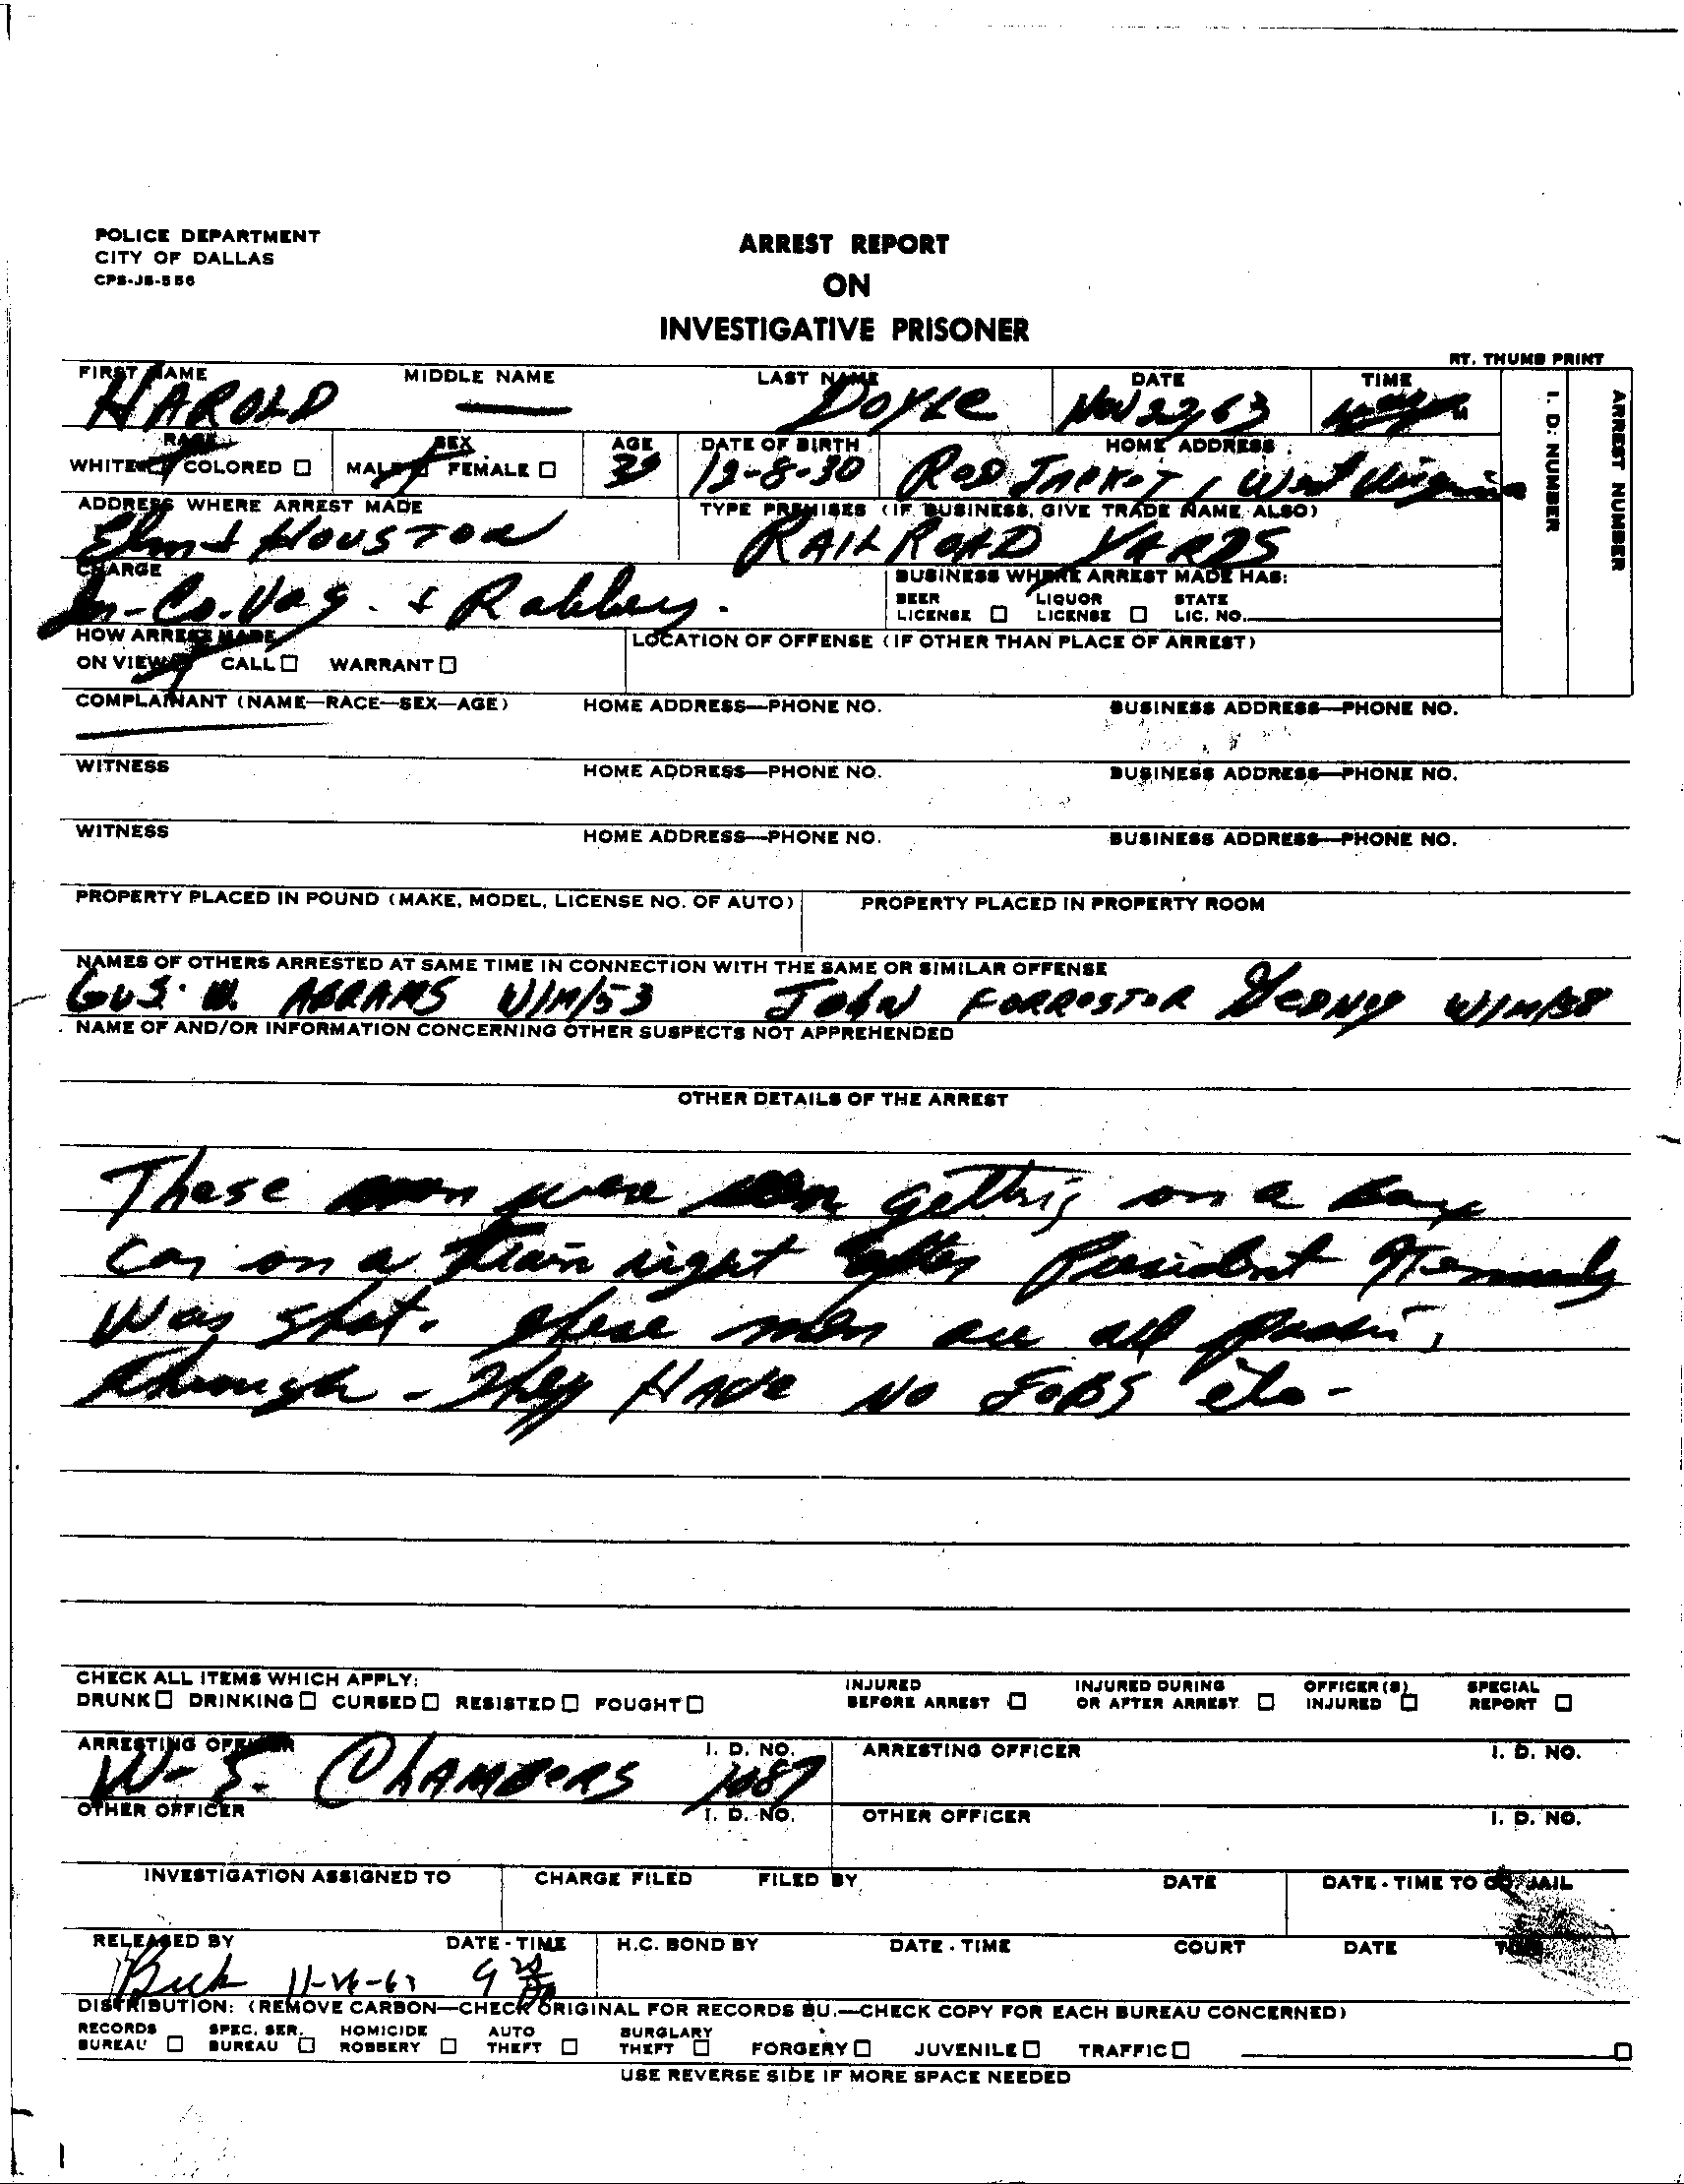 POLICE DEPARTMENT
CITY OF DALLAS
CPS-JB-556
ARREST REPORT
ON
INVESTIGATIVE PRISONER
RT. THUMB PRINT
FIRST NAME MIDDLE NAME LAST NAME DATE TIME
HAROLD — DOYLE Nov 22, 63
I. D. NUMBER
ARREST NUMBER
RACE SEX AGE DATE OF BIRTH HOME ADDRESS
WHITE COLORED MALE FEMALE 32 12-8-30 Red Jacket, West Virginia
ADDRESS WHERE ARREST MADE TYPE PREMISES (IF BUSINESS, GIVE TRADE NAME ALSO)
Elm & HOUSTON RAIL ROAD YARDS
CHARGE BUSINESS WHERE ARREST MADE HAS:
In-Co. Vag. & Robbery. BEER LICENSE LIQUOR LICENSE STATE LIC. NO.
HOW ARREST MADE LOCATION OF OFFENSE (IF OTHER THAN PLACE OF ARREST)
ON VIEW CALL WARRANT
COMPLAINANT (NAME—RACE—SEX—AGE) HOME ADDRESS—PHONE NO. BUSINESS ADDRESS—PHONE NO.
WITNESS HOME ADDRESS—PHONE NO. BUSINESS ADDRESS—PHONE NO.
WITNESS HOME ADDRESS—PHONE NO. BUSINESS ADDRESS—PHONE NO.
PROPERTY PLACED IN POUND (MAKE, MODEL, LICENSE NO. OF AUTO) PROPERTY PLACED IN PROPERTY ROOM
NAMES OF OTHERS ARRESTED AT SAME TIME IN CONNECTION WITH THE SAME OR SIMILAR OFFENSE
GUS. W. ABRAMS W/M/53 JOHN FORRESTOR GEDNEY W/M/38
NAME OF AND/OR INFORMATION CONCERNING OTHER SUSPECTS NOT APPREHENDED
OTHER DETAILS OF THE ARREST
These men were getting on a box
car on a train right after President Kennedy
Was shot. These men are all passing
through - They HAVE NO JOBS etc-
CHECK ALL ITEMS WHICH APPLY:
DRUNK DRINKING CURSED RESISTED FOUGHT INJURED BEFORE ARREST INJURED DURING OR AFTER ARREST OFFICER(S) INJURED SPECIAL REPORT
ARRESTING OFFICER I. D. NO. ARRESTING OFFICER I. D. NO.
W- S. CHAMBERS 1087
OTHER OFFICER I. D. NO. OTHER OFFICER I. D. NO.
INVESTIGATION ASSIGNED TO CHARGE FILED FILED BY DATE DATE - TIME TO CO. JAIL
RELEASED BY DATE - TIME H.C. BOND BY DATE - TIME COURT DATE TIME
11-26-63
DISTRIBUTION: (REMOVE CARBON—CHECK ORIGINAL FOR RECORDS BU.—CHECK COPY FOR EACH BUREAU CONCERNED)
RECORDS BUREAU SPEC. SER. BUREAU HOMICIDE ROBBERY AUTO THEFT BURGLARY THEFT FORGERY JUVENILE TRAFFIC
USE REVERSE SIDE IF MORE SPACE NEEDED